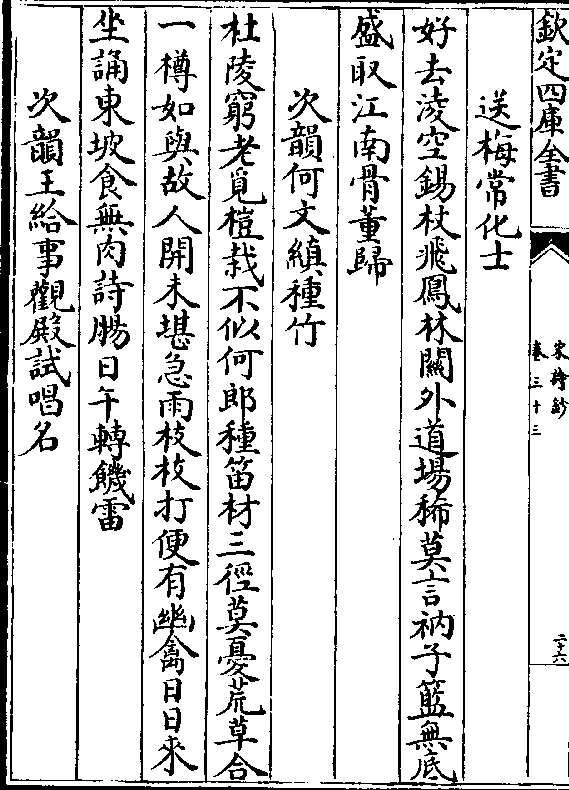 欽定四庫全書
宋詩鈔
卷三十三
二十六
送梅常化士
好去淩空錫杖飛鳳林關外道場稀莫言衲子籃無底
盛取江南骨董歸
次韻何文縝種竹
杜陵窮老覓榿栽不似何郎種笛材三徑莫憂荒草合
一樽如與故人開未堪急雨枝枝打便有幽禽日日來
坐誦東坡食無肉詩腸日午轉饑雷
次韻王給事觀殿試唱名